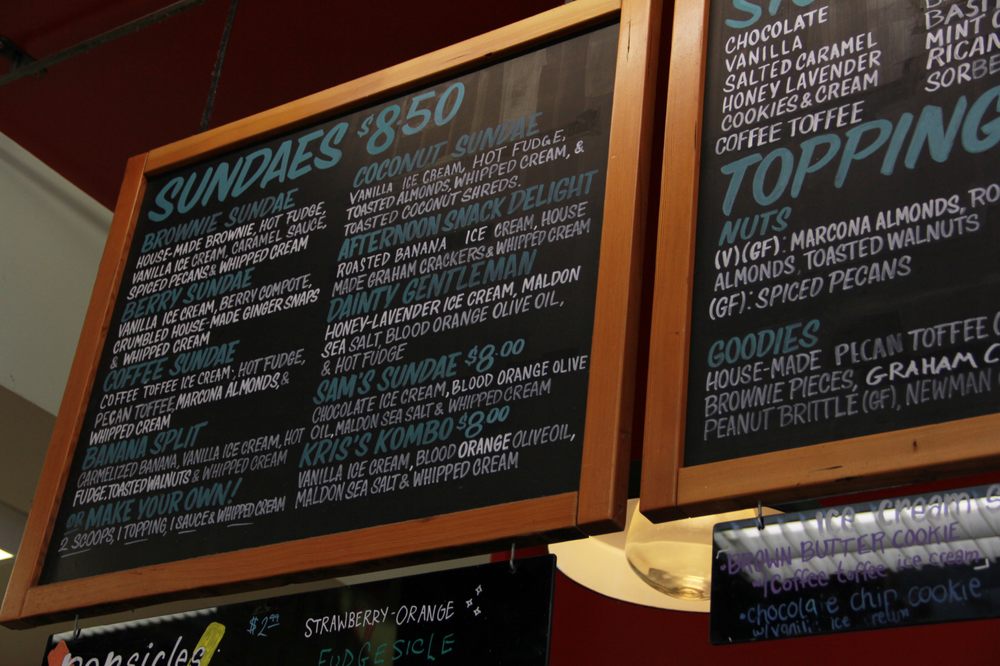 SUNDAES $8.50
BROWNIE SUNDAE
HOUSE-MADE BROWNIE, HOT FUDGE,
VANILLA ICE CREAM, CARAMEL SAUCE,
SPICED PECANS & WHIPPED CREAM
BERRY SUNDAE
VANILLA ICE CREAM, BERRY COMPOTE,
CRUMBLED HOUSE-MADE GINGER SNAPS
& WHIPPED CREAM
COFFEE SUNDAE
COFFEE TOFFEE ICE CREAM, HOT FUDGE,
PECAN TOFFEE, MARCONA ALMONDS, &
WHIPPED CREAM
BANANA SPLIT
CARMELIZED BANANA, VANILLA ICE CREAM, HOT
FUDGE, TOASTED WALNUTS & WHIPPED CREAM
OR MAKE YOUR OWN!
2 SCOOPS, 1 TOPPING, 1 SAUCE & WHIPPED CREAM
COCONUT SUNDAE
VANILLA ICE CREAM, HOT FUDGE,
TOASTED ALMONDS, WHIPPED CREAM, &
TOASTED COCONUT SHREDS.
AFTERNOON SNACK DELIGHT
ROASTED BANANA ICE CREAM, HOUSE
MADE GRAHAM CRACKERS & WHIPPED CREAM
DAINTY GENTLEMAN
HONEY-LAVENDER ICE CREAM, MALDON
SEA SALT, BLOOD ORANGE OLIVE OIL,
& HOT FUDGE
SAM'S SUNDAE $8.00
CHOCOLATE ICE CREAM, BLOOD ORANGE OLIVE
OIL, MALDON SEA SALT & WHIPPED CREAM
KRIS'S KOMBO $8.00
VANILLA ICE CREAM, BLOOD ORANGE OLIVE OIL,
MALDON SEA SALT & WHIPPED CREAM
CHOCOLATE
VANILLA
SALTED CARAMEL
HONEY LAVENDER
COOKIES & CREAM
COFFEE TOFFEE
MINT
SORBE
TOPPING
NUTS
(V)(GF): MARCONA ALMONDS, RO
ALMONDS, TOASTED WALNUTS
(GF): SPICED PECANS
GOODIES
HOUSE-MADE PECAN TOFFEE (
BROWNIE PIECES, GRAHAM C
PEANUT BRITTLE (GF), NEWMAN
popsicles
$2.99
STRAWBERRY-ORANGE
FUDGESICLE
ice cream s
• BROWN BUTTER COOKIE
w/ Coffee toffee ice cream
• chocolate chip cookie
w/ vanil ice